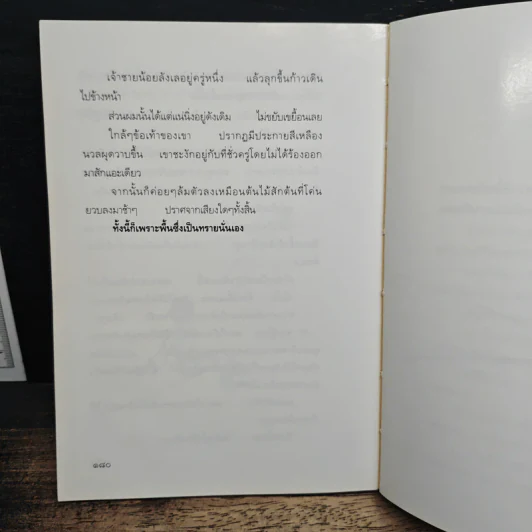 เจ้าชายน้อยลังเลอยู่ครู่หนึ่ง แล้วลุกขึ้นก้าวเดิน
ไปข้างหน้า
ส่วนผมนั้นได้แต่แน่นิ่งอยู่ดังเดิม ไม่ขยับเขยื้อนเลย
ใกล้ๆข้อเท้าของเขา ปรากฏมีประกายสีเหลือง
นวลผุดวาบขึ้น เขาชะงักอยู่กับที่ชั่วครู่โดยไม่ได้ร้องออก
มาสักแอะเดียว
จากนั้นก็ค่อยๆล้มตัวลงเหมือนต้นไม้สักต้นที่โค่น
ยวบลงมาช้าๆ ปราศจากเสียงใดๆทั้งสิ้น
ทั้งนี้ก็เพราะพื้นซึ่งเป็นทรายนั่นเอง
๑๘๐